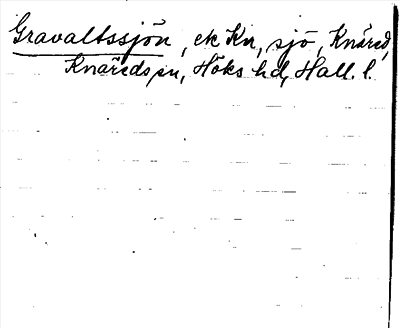 Gravaltssjön, ek Kn, sjö, Knäred,
Knäreds sn, Höks hd, Hall. l.